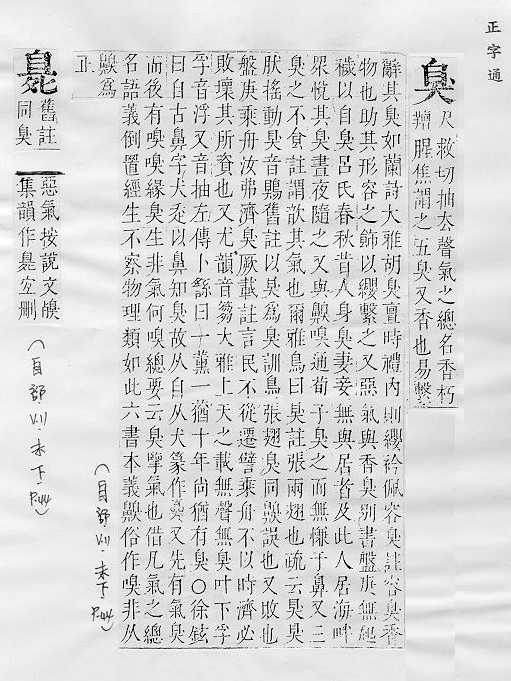 正字通
臭
尺救切抽去聲氣之總名香朽
羶腥焦謂之五臭又香也易繫
辭其臭如蘭詩大雅胡臭亶時禮內則纓衿佩容臭註容臭香
物也助其形容之飾以纓繫之又惡氣與香臭別書盤庚無起
穢以自臭呂氏春秋昔人身臭妻妾無與居者及此人居海畔
衆悅其臭晝夜隨之又與齅嗅通荀子臭之而無嗛于鼻又三
臭之不食註謂歆其氣也爾雅鳥曰狊註張兩翅也疏云狊狊
然搖動狊音鶪舊註以狊為臭訓鳥張翅臭同齅誤也又敗也
盤庚乘舟汝弗濟臭厥載註言民不從遷譬乘舟不以時濟必
敗壞其所資也又尤韻音篘大雅上天之載無聲無臭叶下孚
孚音浮又音抽左傳卜繇曰十薰一蕕十年尚猶有臭○徐鉉
曰自古鼻字犬走以鼻知臭故从自从犬篆作又先有氣臭
而後有嗅嗅緣臭生非氣何嗅總要云臭孳氣也借凡氣之總
名語義倒置經生不察物理類如此六書本義齅俗作嗅非从
齅為
正
(自部 VII·未下·P44)
舊註
同臭
惡氣按說文
集韻作宜刪
(自部 VII·未下·P44)